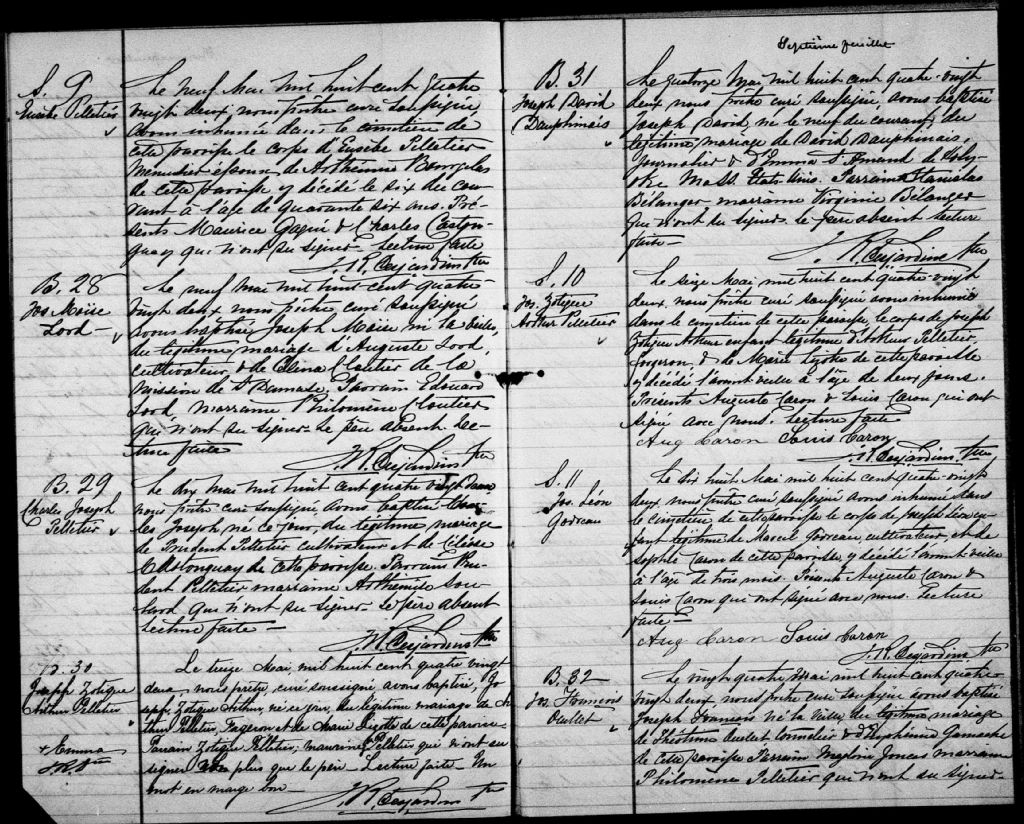 S. 9
Eusèbe Pelletier
Le neuf Mai mil huit cent quatre
vingt deux, nous prêtre curé soussigné
avons inhumé dans le cimetière de
cette paroisse le corps d'Eusèbe Pelletier
Menuisier époux de Arthémise Bourgelas
de cette paroisse y décédé le six du cou-
rant à l'age de quarante six ans. Pré-
sents Maurice Gagné & Charles Caston-
guay qui n'ont su signer. Lecture faite
J. R. Desjardins Ptre
B. 28
Jos Moïse
Lord
Le neuf Mai mil huit cent quatre-
vingt deux nous prêtre curé soussigné
avons baptisé Joseph Moise né la veille,
du légitime mariage d'Auguste Lord,
cultivateur, & de Elina Cloutier de la
mission de St Damase. Parrain Edouard
Lord, marraine Philomène Cloutier
qui n'ont su signer. Le père absent Lec-
ture faite
J. R. Desjardins Ptre
B. 29
Charles Joseph
Pelletier
Le dix Mai mil huit cent quatre vingt deux
nous prêtre curé soussigné avons baptisé Char-
les Joseph, né ce jour, du légitime mariage
de Prudent Pelletier cultivateur et de Célèse
Castonguay de cette paroisse. Parrain Pru-
dent Pelletier marraine Arthémise Sou-
lard qui n'ont su signer. Le père absent
Lecture faite —
J. R. Desjardins Ptre
B. 30
Joseph Zotique
Arthur Pelletier
+ Emma
Le treize Mai, mil huit cent quatre vingt
deux, nous prêtre curé soussigné, avons baptisé, Jo
seph Zotique Arthur, né ce jour, du légitime mariage de Ar
thur Pelletier, Forgeron et de Marie Lizotte de cette paroisse
Parrain Zotique Pelletier; marraine + Pelletier qui n'ont su
signer non plus que le père. Lecture faite — Un
mot en marge bon —
J. R. Desjardins Ptre
Septième feuillet
B. 31
Joseph David
Dauphinais
Le quatorze Mai mil huit cent quatre-vingt
deux nous prêtre curé soussigné, avons baptisé
Joseph David, né le neuf du courant, du
légitime mariage de David Dauphinais,
Journalier & d'Emma St Amand de Holy-
oke Mass. Etats Unis. Parrain Stanislas
Bélanger marraine Virginie Bélanger
qui n'ont su signer. Le père absent lecture
faite —
J. R. Desjardins Ptre
S. 10
Jos. Zotique
Arthur Pelletier
Le seize Mai mil huit cent quatre-vingt
deux, nous prêtre curé soussigné avons inhumé
dans le cimetière de cette paroisse, le corps de Joseph
Zotique Arthur enfant légitime d'Arthur Pelletier,
Forgeron, & de Marie Lizotte de cette paroisse
y décédé l'avant veille à l'âge de deux jours.
Présents Auguste Caron & Louis Caron qui ont
signé avec nous. Lecture faite
Aug Caron Louis Caron
J. R. Desjardins Ptre
S. 11
Jos. Léon
Godreau
Le dix huit Mai mil huit cent quatre vingt
deux, nous prêtre curé soussigné avons inhumé dans
le cimetière de cette paroisse le corps de Joseph Léon en-
fant légitime de Marcel Godreau, cultivateur, et de
Sophie Caron de cette paroisse, y décédé l'avant veille
à l'âge de trois mois. Présents Auguste Caron &
Louis Caron qui ont signé avec nous. Lecture
faite —
Aug Caron Louis Caron
J. R. Desjardins Ptre
B. 32
Jos. François
Ouellet
Le vingt quatre Mai mil huit cent quatre-
vingt deux nous prêtre curé soussigné avons baptisé
Joseph Francois né la veille du légitime mariage
de Théotime Ouellet & d'Euphémie Gamache
de cette paroisse Parrain Joncas marraine
Philomène Pelletier qui n'ont su signer.